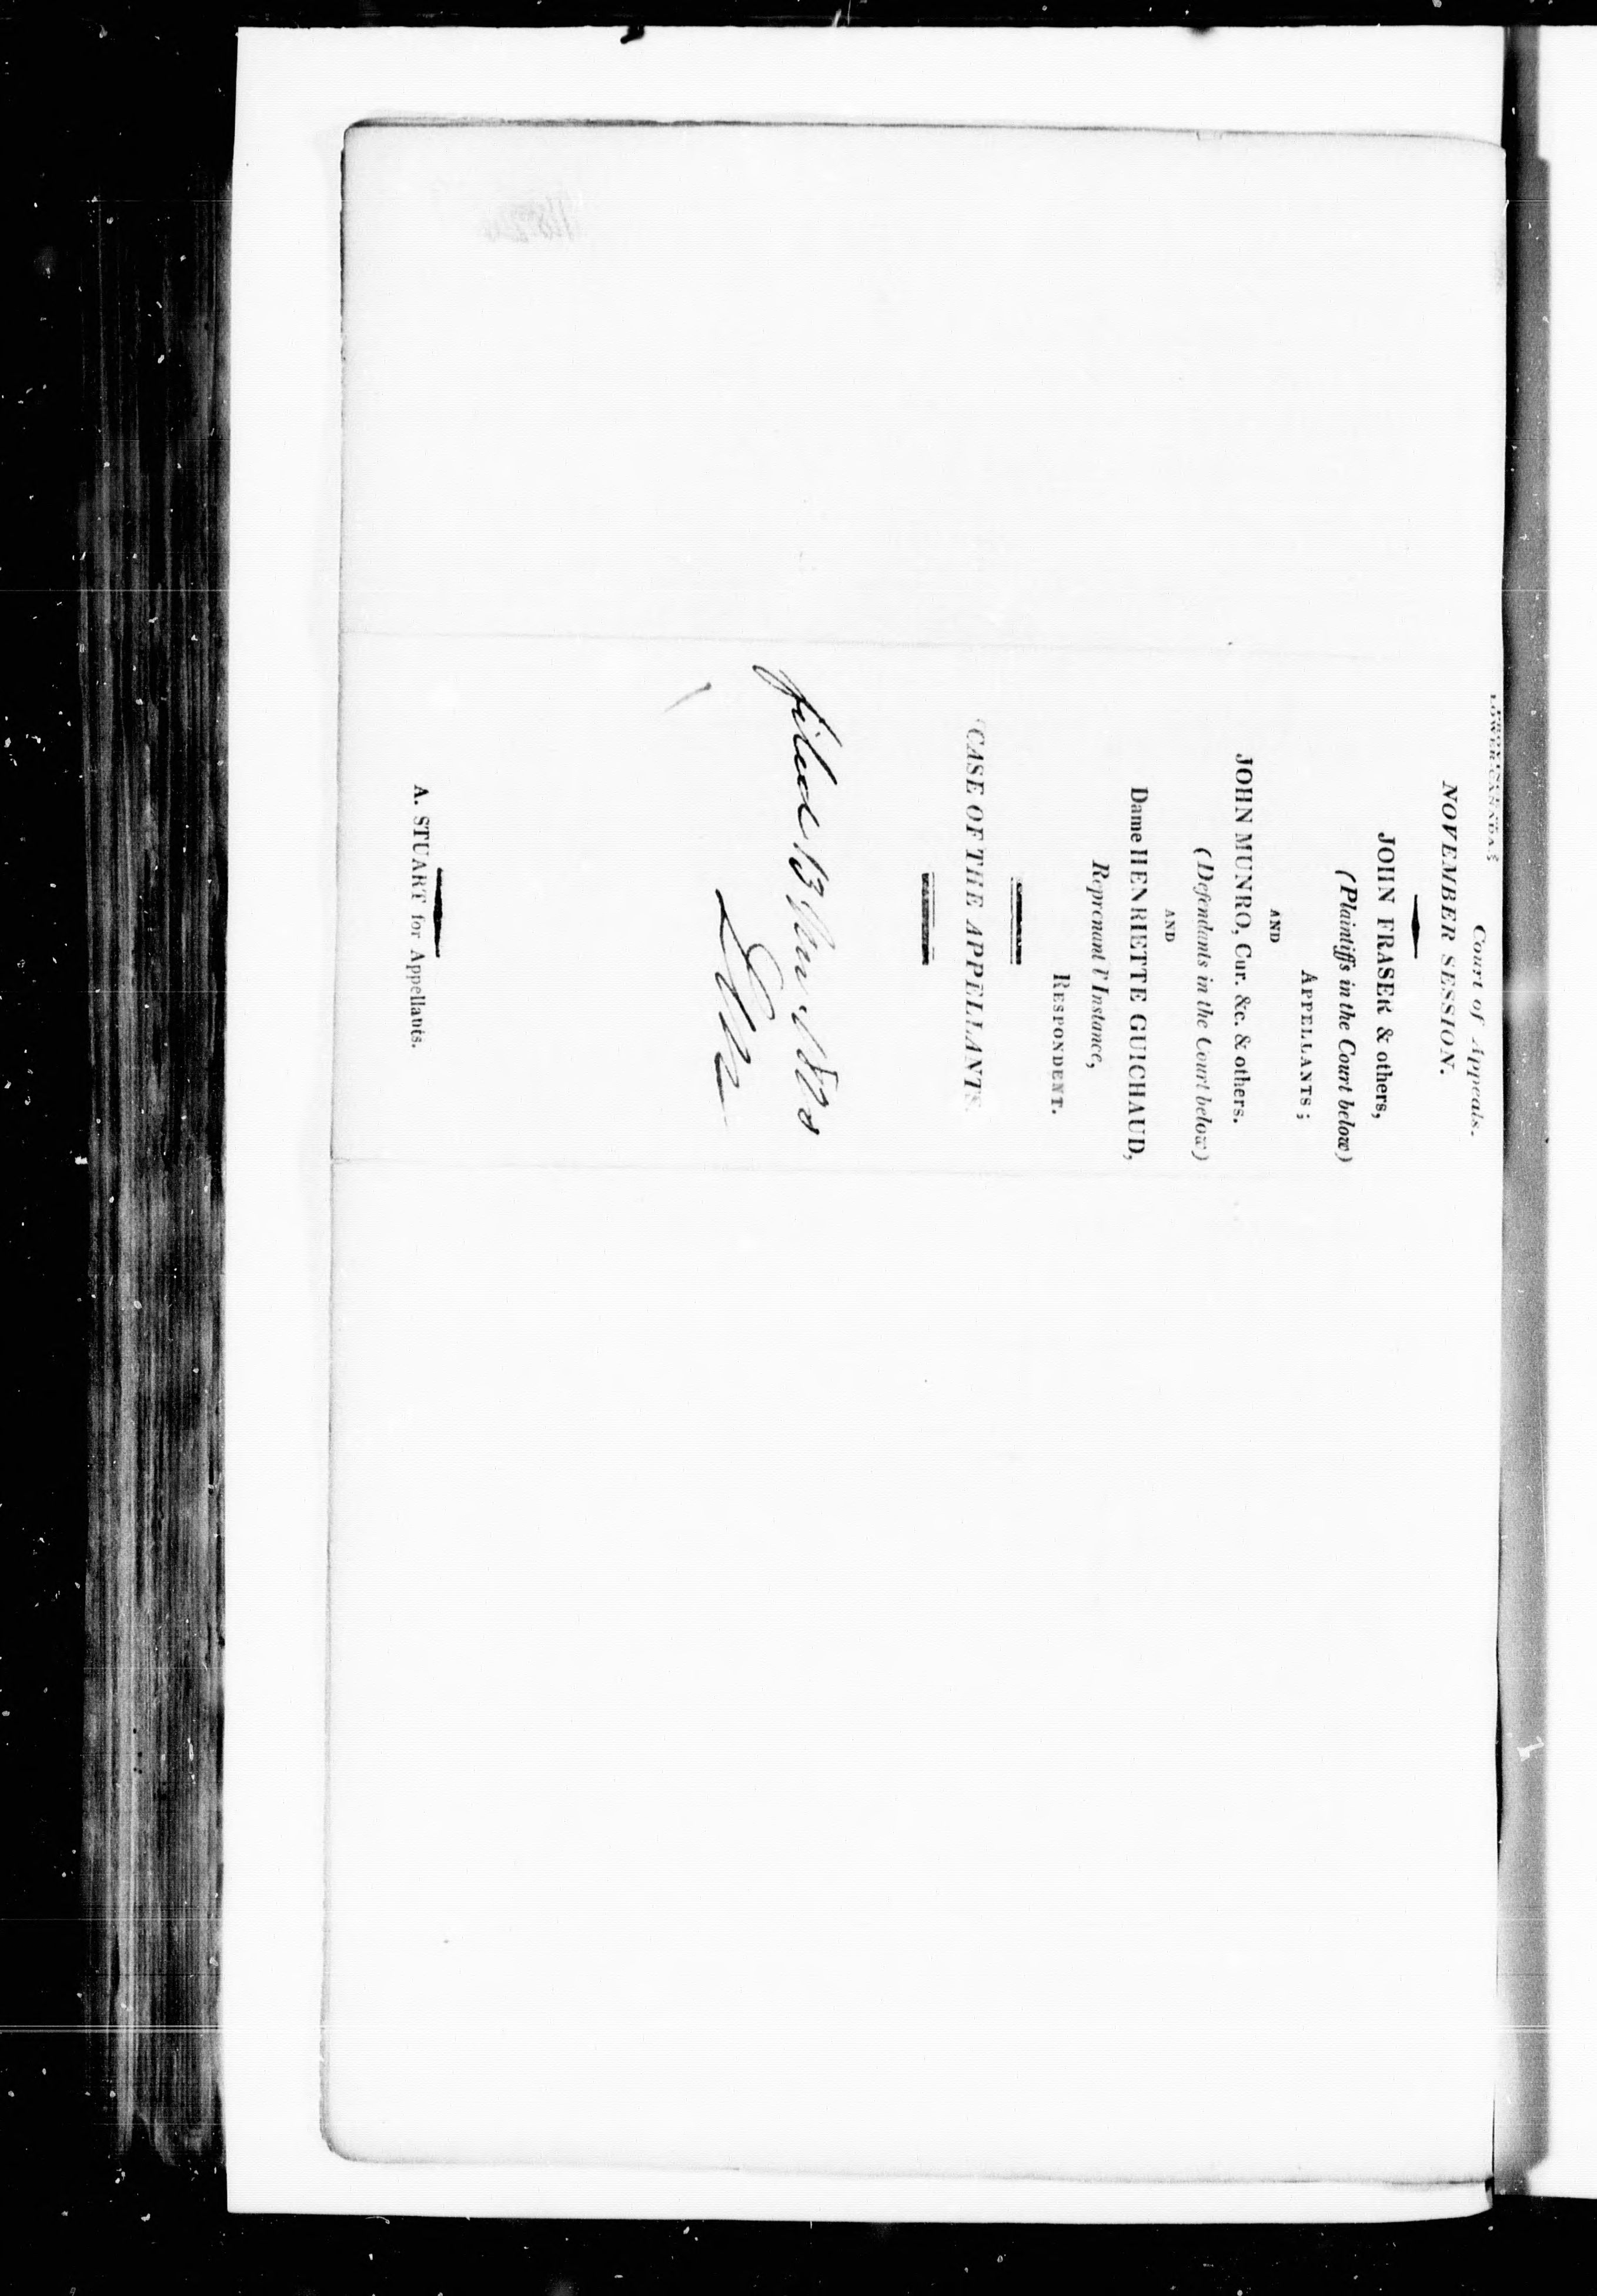 LOWER CANADA
Court of Appeals.
NOVEMBER SESSION.
JOHN FRASER & others,
(Plaintiffs in the Court below)
APPELLANTS;
AND
JOHN MUNRO, Cur. &c. & others.
(Defendants in the Court below)
AND
Dame HENRIETTE GUICHAUD,
Reprenant l'Instance,
RESPONDENT.
CASE OF THE APPELLANTS.
filed 13
A. STUART for Appellants.